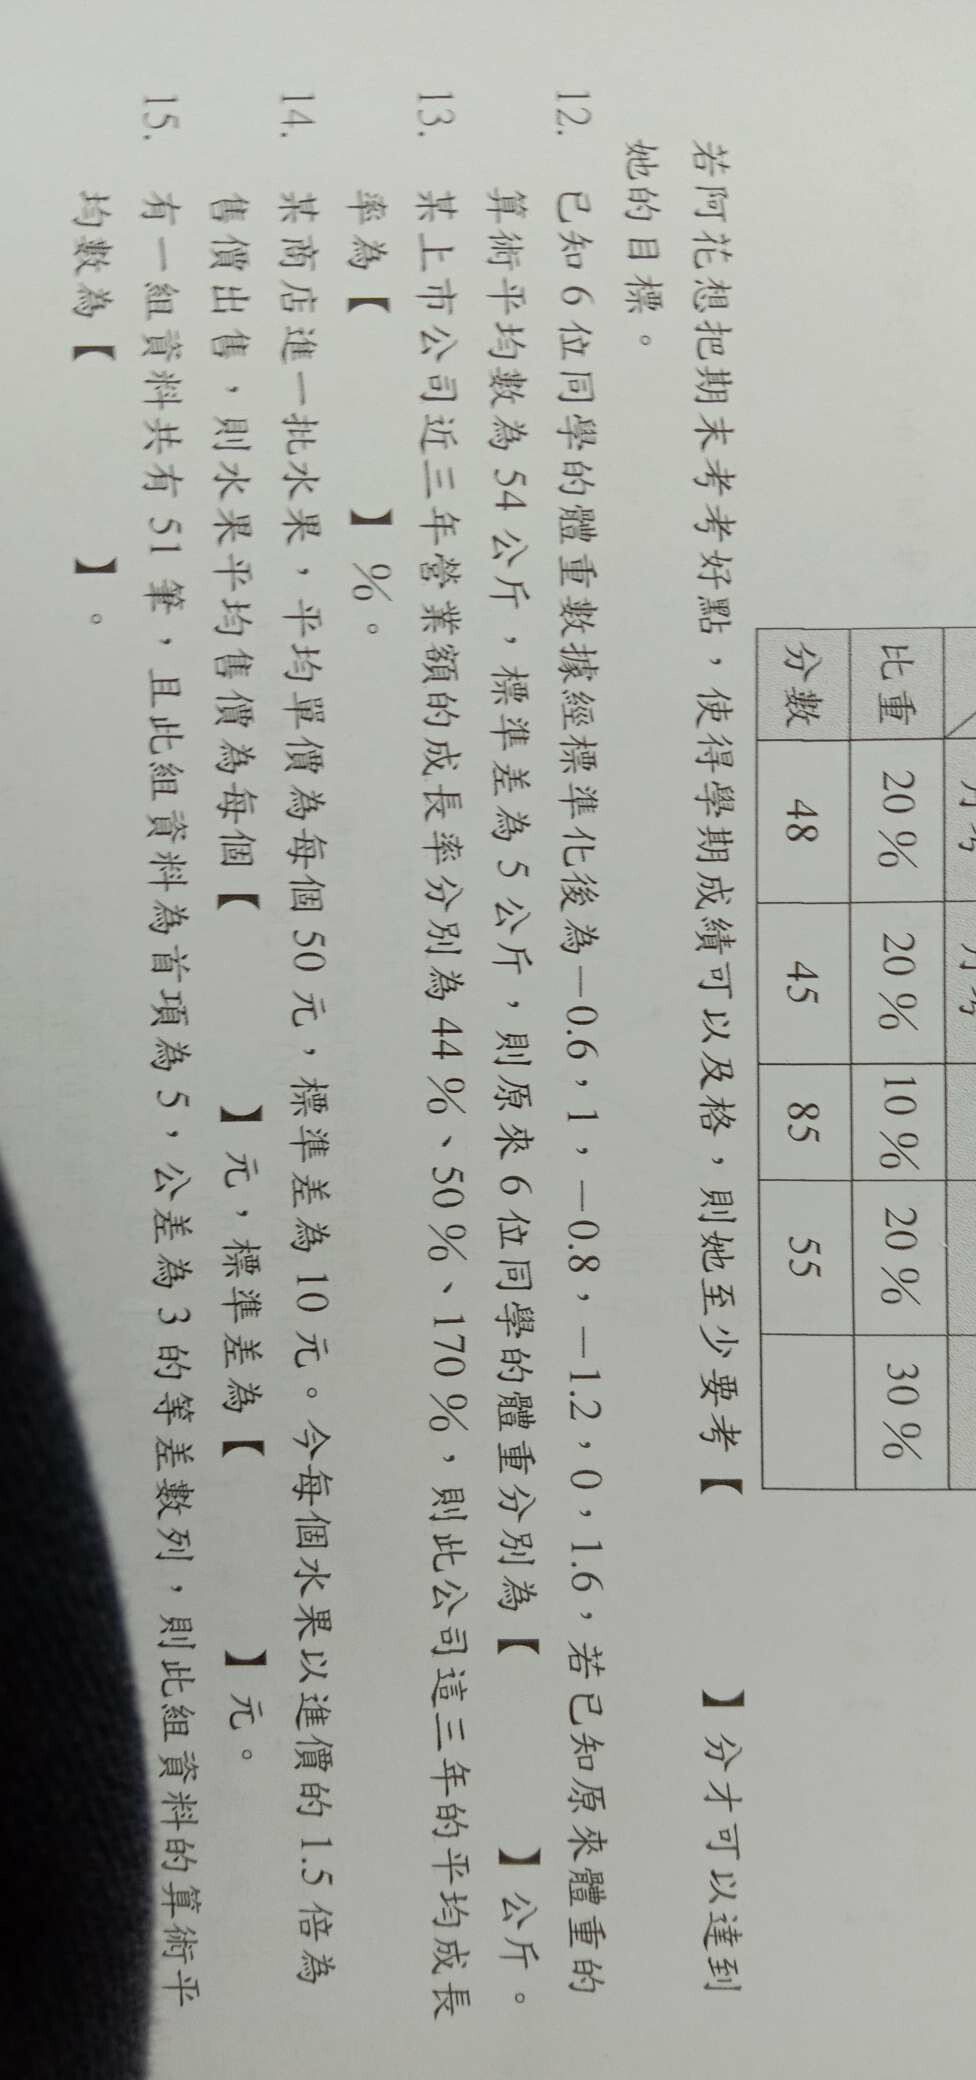 比重 20% 20% 10% 20% 30%
分數 48 45 85 55
若阿花想把期末考考好點，使得學期成績可以及格，則她至少要考【 】分才可以達到
她的目標。
12. 已知6位同學的體重數據經標準化後為－0.6，1，－0.8，－1.2，0，1.6，若已知原來體重的
算術平均數為54公斤，標準差為5公斤，則原來6位同學的體重分別為【 】公斤。
13. 某上市公司近三年營業額的成長率分別為44%、50%、170%，則此公司這三年的平均成長
率為【 】%。
14. 某商店進一批水果，平均單價為每個50元，標準差為10元。今每個水果以進價的1.5倍為
售價出售，則水果平均售價為每個【 】元，標準差為【 】元。
15. 有一組資料共有51筆，且此組資料為首項為5，公差為3的等差數列，則此組資料的算術平
均數為【 】。